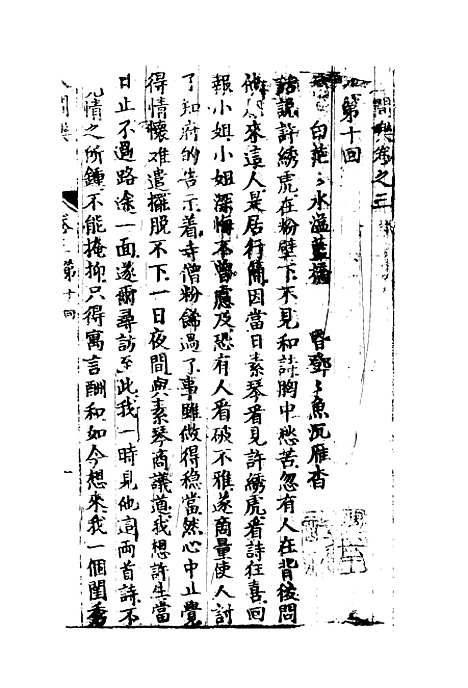 閙樂卷之三
第十回
白茫〻水溢藍橋　昏鄧〻魚沉雁杳
話說許綉虎在粉壁下不見和詩胸中愁苦忽有人在背後問
他原來這人是居行簡因當日素琴看見許綉虎看詩狂喜回
報小姐小姐深悔不曾慮及恐有人看破不雅遂商量使人討
了知府的告示着寺僧粉餙過了事雖做得穩當然心中止覺
得情懷难遣擺脫不下一日夜間與素琴商議道我想許生當
日止不過路途一面遂爾尋訪至此我一時見他這両首詩不
覺情之所鍾不能掩抑只得寓言酬和如今想來我一個閨秀
卷三　第十回　一